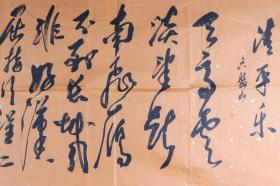 清平乐
六盘山
天高云
淡望断
南飞雁
不到长城
非好汉
屈指行程二